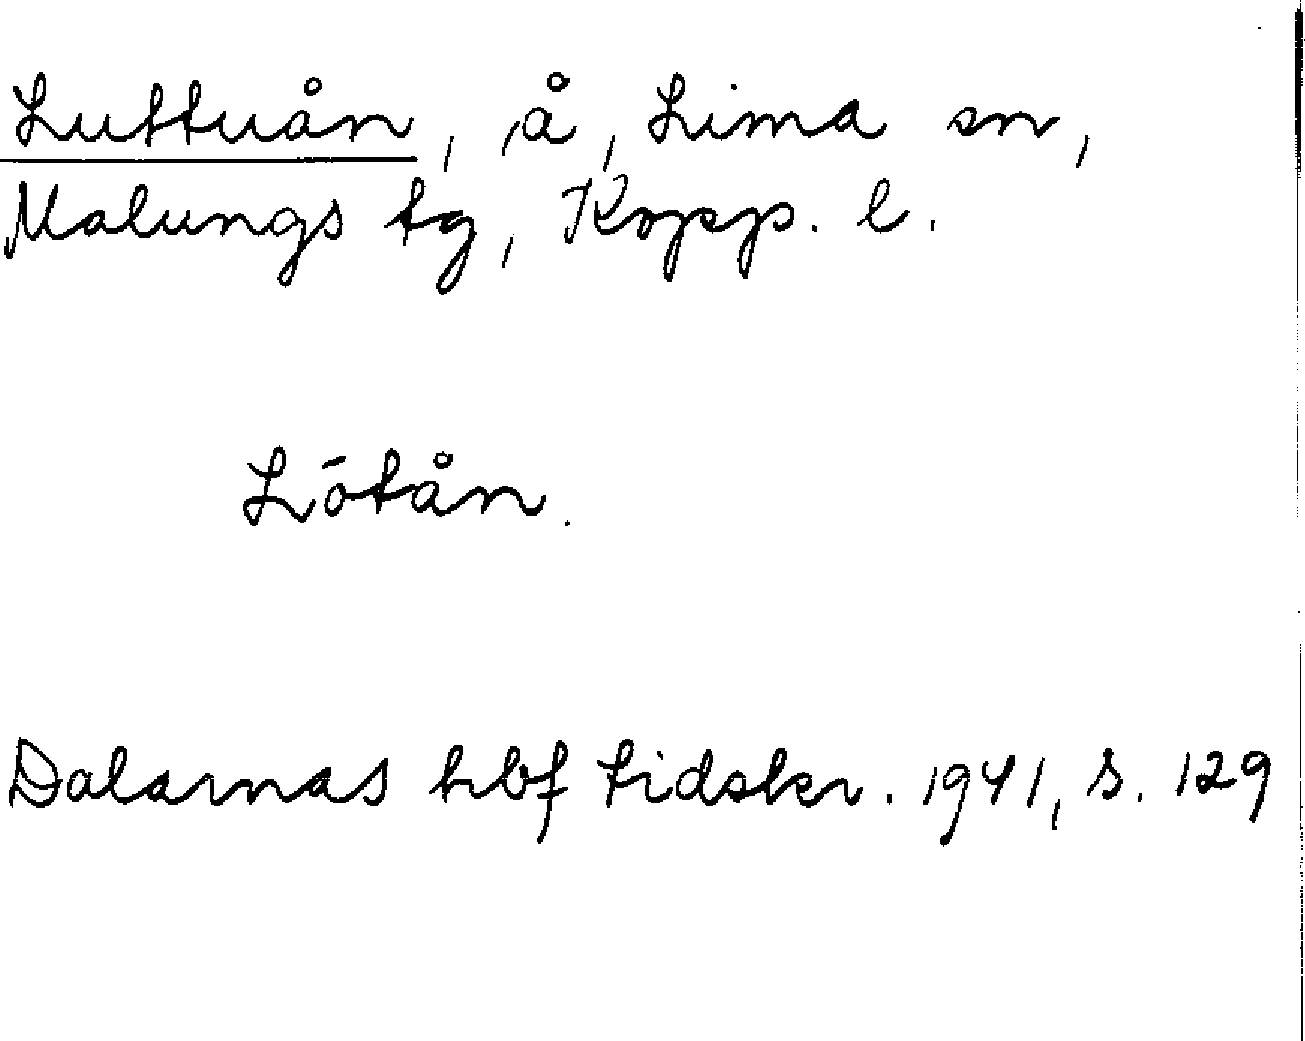 Luttuån, å, Lima sn,
Malungs tg, Kopp. l.
Lōtån.
Dalarnas hbf tidskr. 1941, s. 129